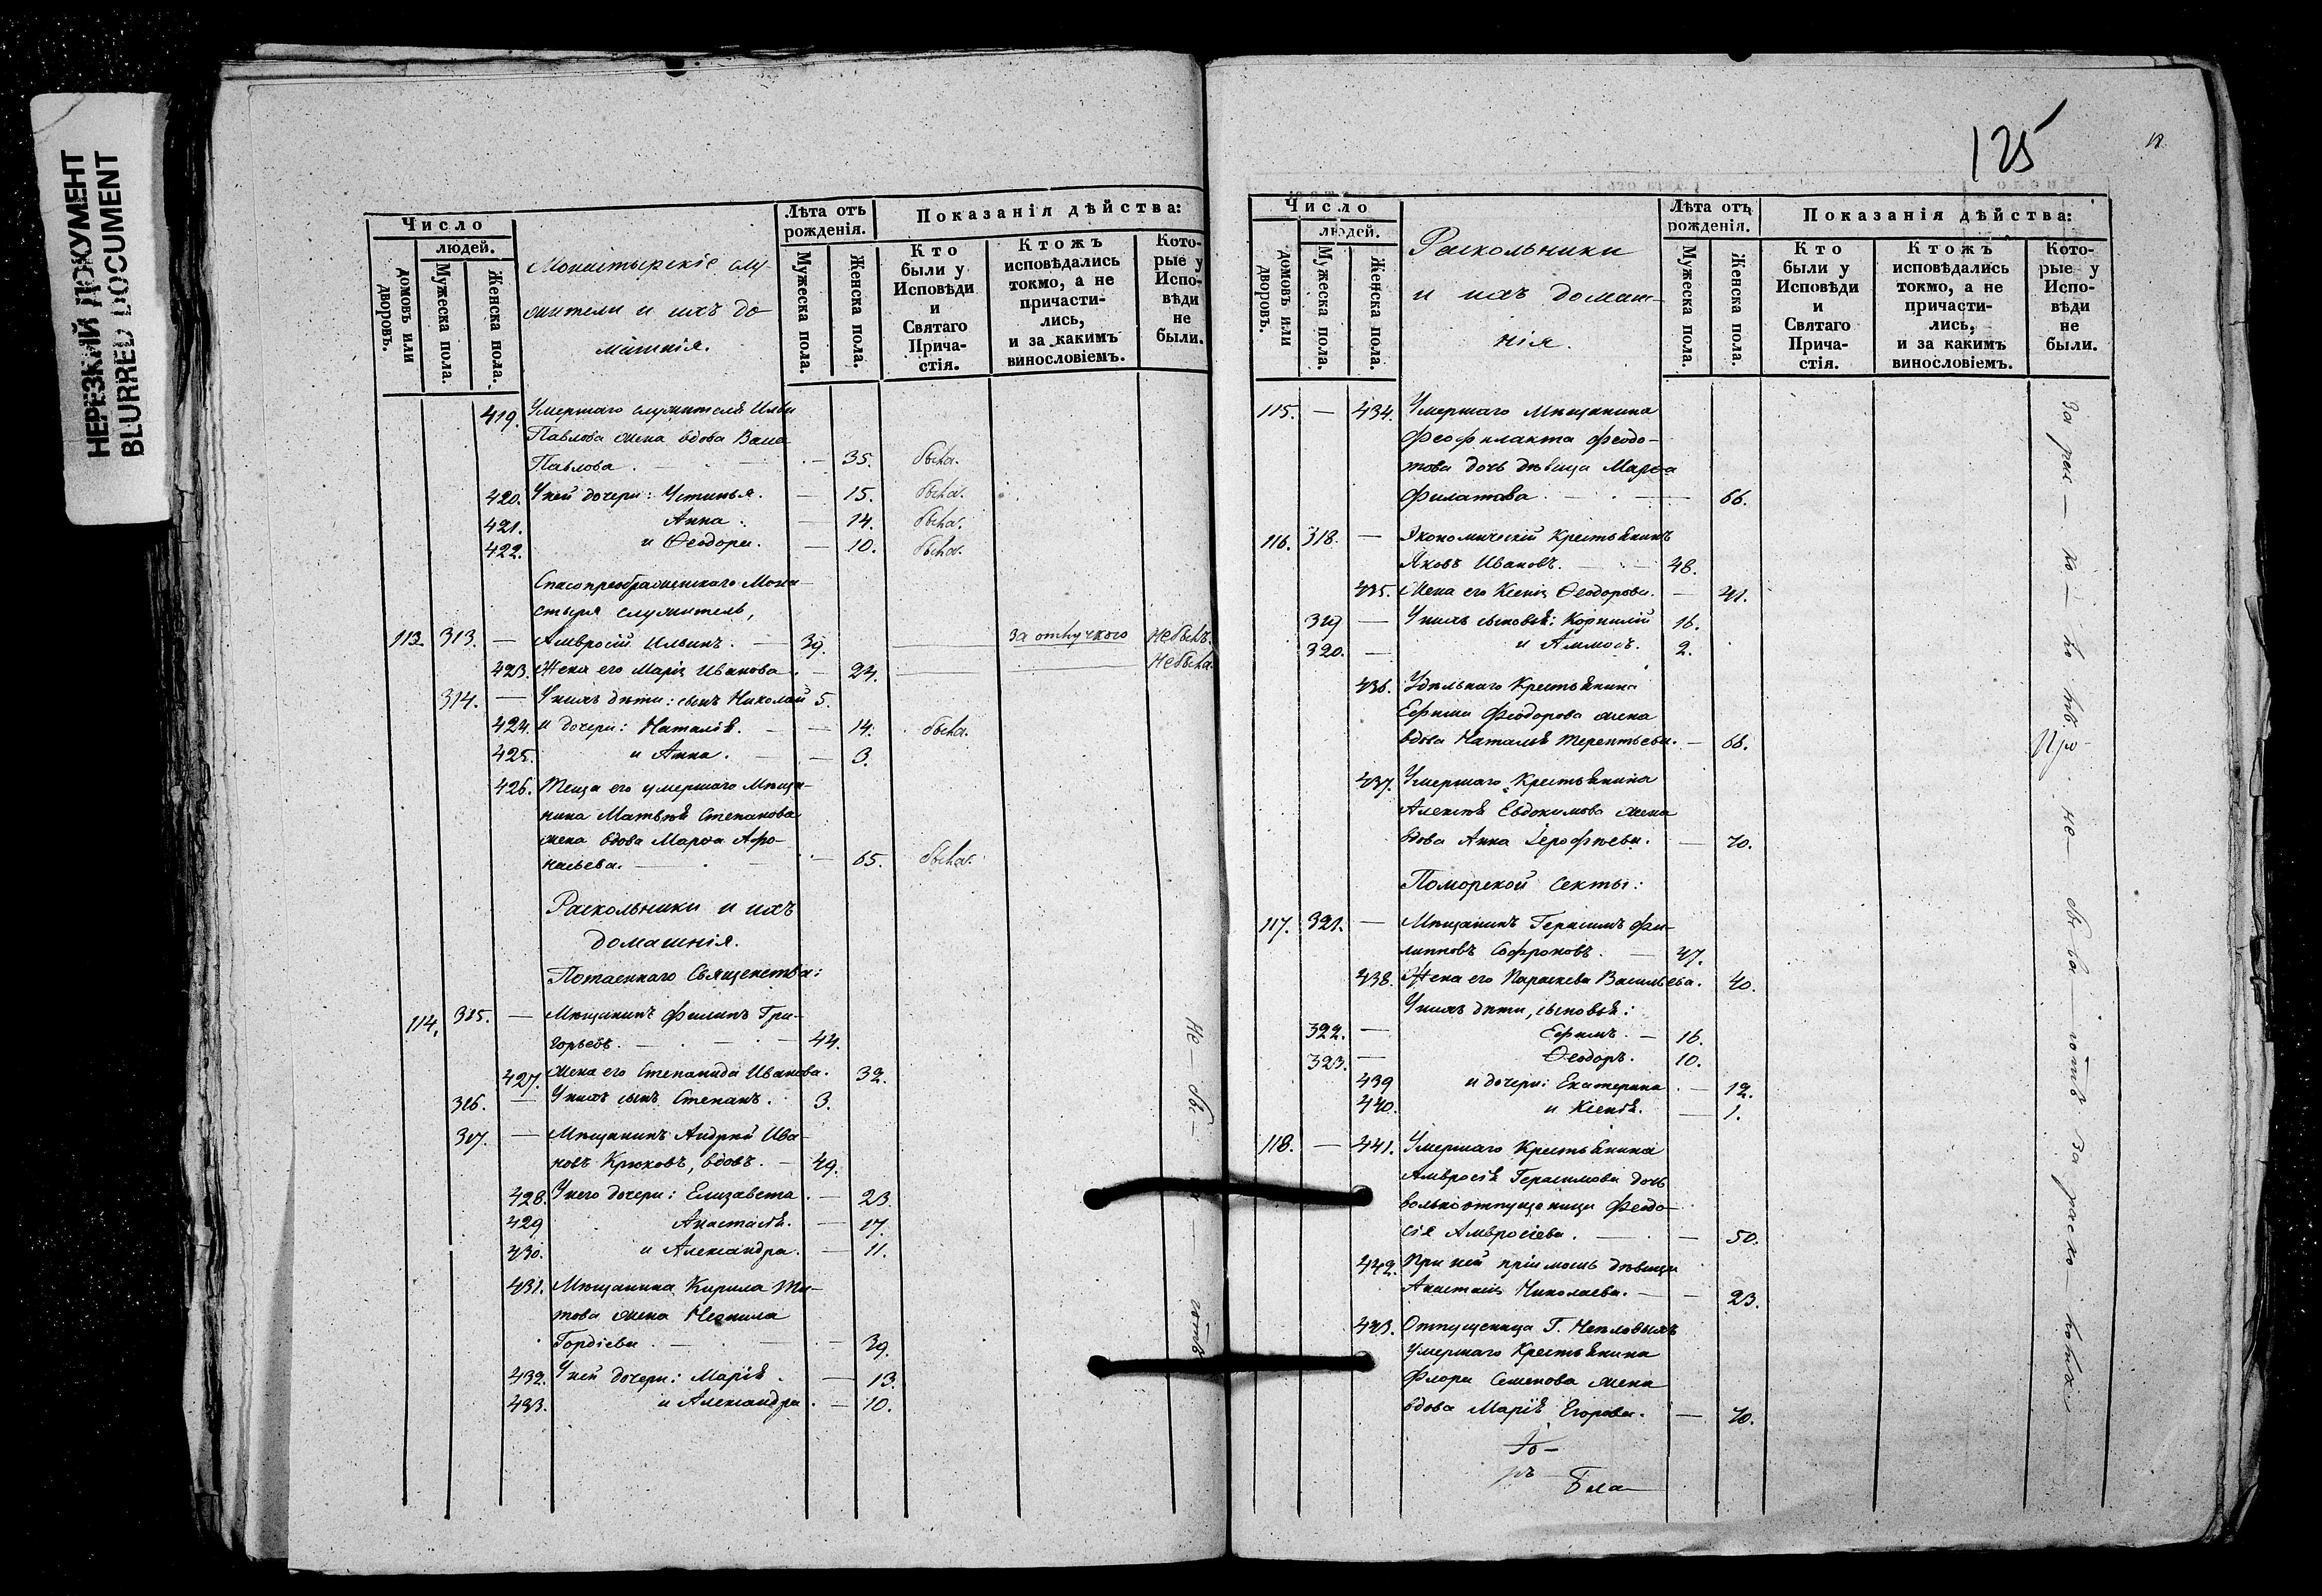 НЕРЕЗКИЙ ДОКУМЕНТ
BLURRED DOCUMENT
Число
людей.
домовъ или дворовъ.
Мужеска пола.
Женска пола.
Монастырскіе слу-
жители и ихъ до-
машнія.
Лѣта отъ рожденія.
Мужеска пола.
Женска пола.
Показанія дѣйства:
Кто были у Исповѣди и Святаго Прича-стія.
Ктожъ исповѣдались токмо, а не причасти-лись, и за какимъ винословіемъ.
Кото-рые у Испо-вѣди не были.
419. Умершаго служителя Ильи
Павлова жена вдова Васса
Павлова. — 35. была.
420. У ней дочери: Устинья. — 15. была.
421. Анна. — 14. была.
422. и Ѳеодора. — 10. была.
Спасопреображенскаго Мона-
стыря служитель,
113. 313. — Амвросій Ильинъ. — 39. за отлучкою небылъ.
423. Жена его Марія Иванова. — 24. небыла.
314. — У нихъ дѣти: сынъ Николай 5.
424. и дочери: Наталія. — 14. была.
425. и Анна. — 3.
426. Теща его умершаго Мѣща-
нина Матвѣя Степанова
жена вдова Марѳа Афо-
насьева. — 65. была.
Раскольники и ихъ
домашнія.
Потаеннаго Священства:
114. 315. — Мѣщанинъ Филипъ Гри-
горьевъ. — 44.
427. Жена его Степанида Иванова. 32.
316. — У нихъ сынъ Степанъ. 3.
317. — Мѣщанинъ Андрей Ива-
новъ Крюковъ, вдовъ. — 49.
428. У него дочери: Елизавета. — 23.
429 Анастасія. — 17.
430. и Александра. — 11.
431. Мѣщанина Кирила Ти-
това жена Неонила
Гордіева. — 39.
432. У ней дочери: Марія. — 13.
433. и Александра. — 10.
125
Число
людей.
домовъ или дворовъ.
Мужеска пола.
Женска пола.
Раскольники
и ихъ домаш-
нія.
Лѣта отъ рожденія.
Мужеска пола.
Женска пола.
Показанія дѣйства:
Кто были у Исповѣди и Святаго Прича-стія.
Ктожъ исповѣдались токмо, а не причасти-лись, и за какимъ винословіемъ.
Кото-рые у Испо-вѣди не были.
115. — 434. Умершаго Мѣщанина
Феофилакта Феодо-
това дочь дѣвица Марѳа
Филатова. — 66.
116. 318. — Экономическій Крестьянинъ
Яковъ Ивановъ. — 48.
435. Жена его Ксенія Ѳеодорова. — 41.
319 — У нихъ сыновья: Корнилій 16.
320. — и Аммосъ. 2.
436. Удѣльнаго Крестьянина
Ефима Феодорова жена
вдова Наталья Терентьева. — 68.
437. Умершаго Крестьянина
Алексѣя Евдокимова жена
вдова Анна Іерофѣева. — 70.
Поморской секты:
117. 321. — Мѣщанинъ Герасимъ Фи-
липповъ Софроновъ. — 47.
438. Жена его Параскева Васильева. 40.
У нихъ дѣти, сыновья:
322. — Ефимъ. — 16.
323. — Ѳеодоръ. 10.
439 и дочери: Екатерина. — 12.
440. и Ксенія. — 1.
118. — 441. Умершаго Крестьянина
Амвросія Герасимова дочь
вольноотпущеница Феодо-
сія Амвросіева. — 50.
442. При ней пріимошъ дѣвица
Анастасія Николаева. — 23.
443. Отпущеница Г. Непловыхъ
умершаго Крестьянина
Флора Семенова жена
вдова Марія Егорова. — 70.